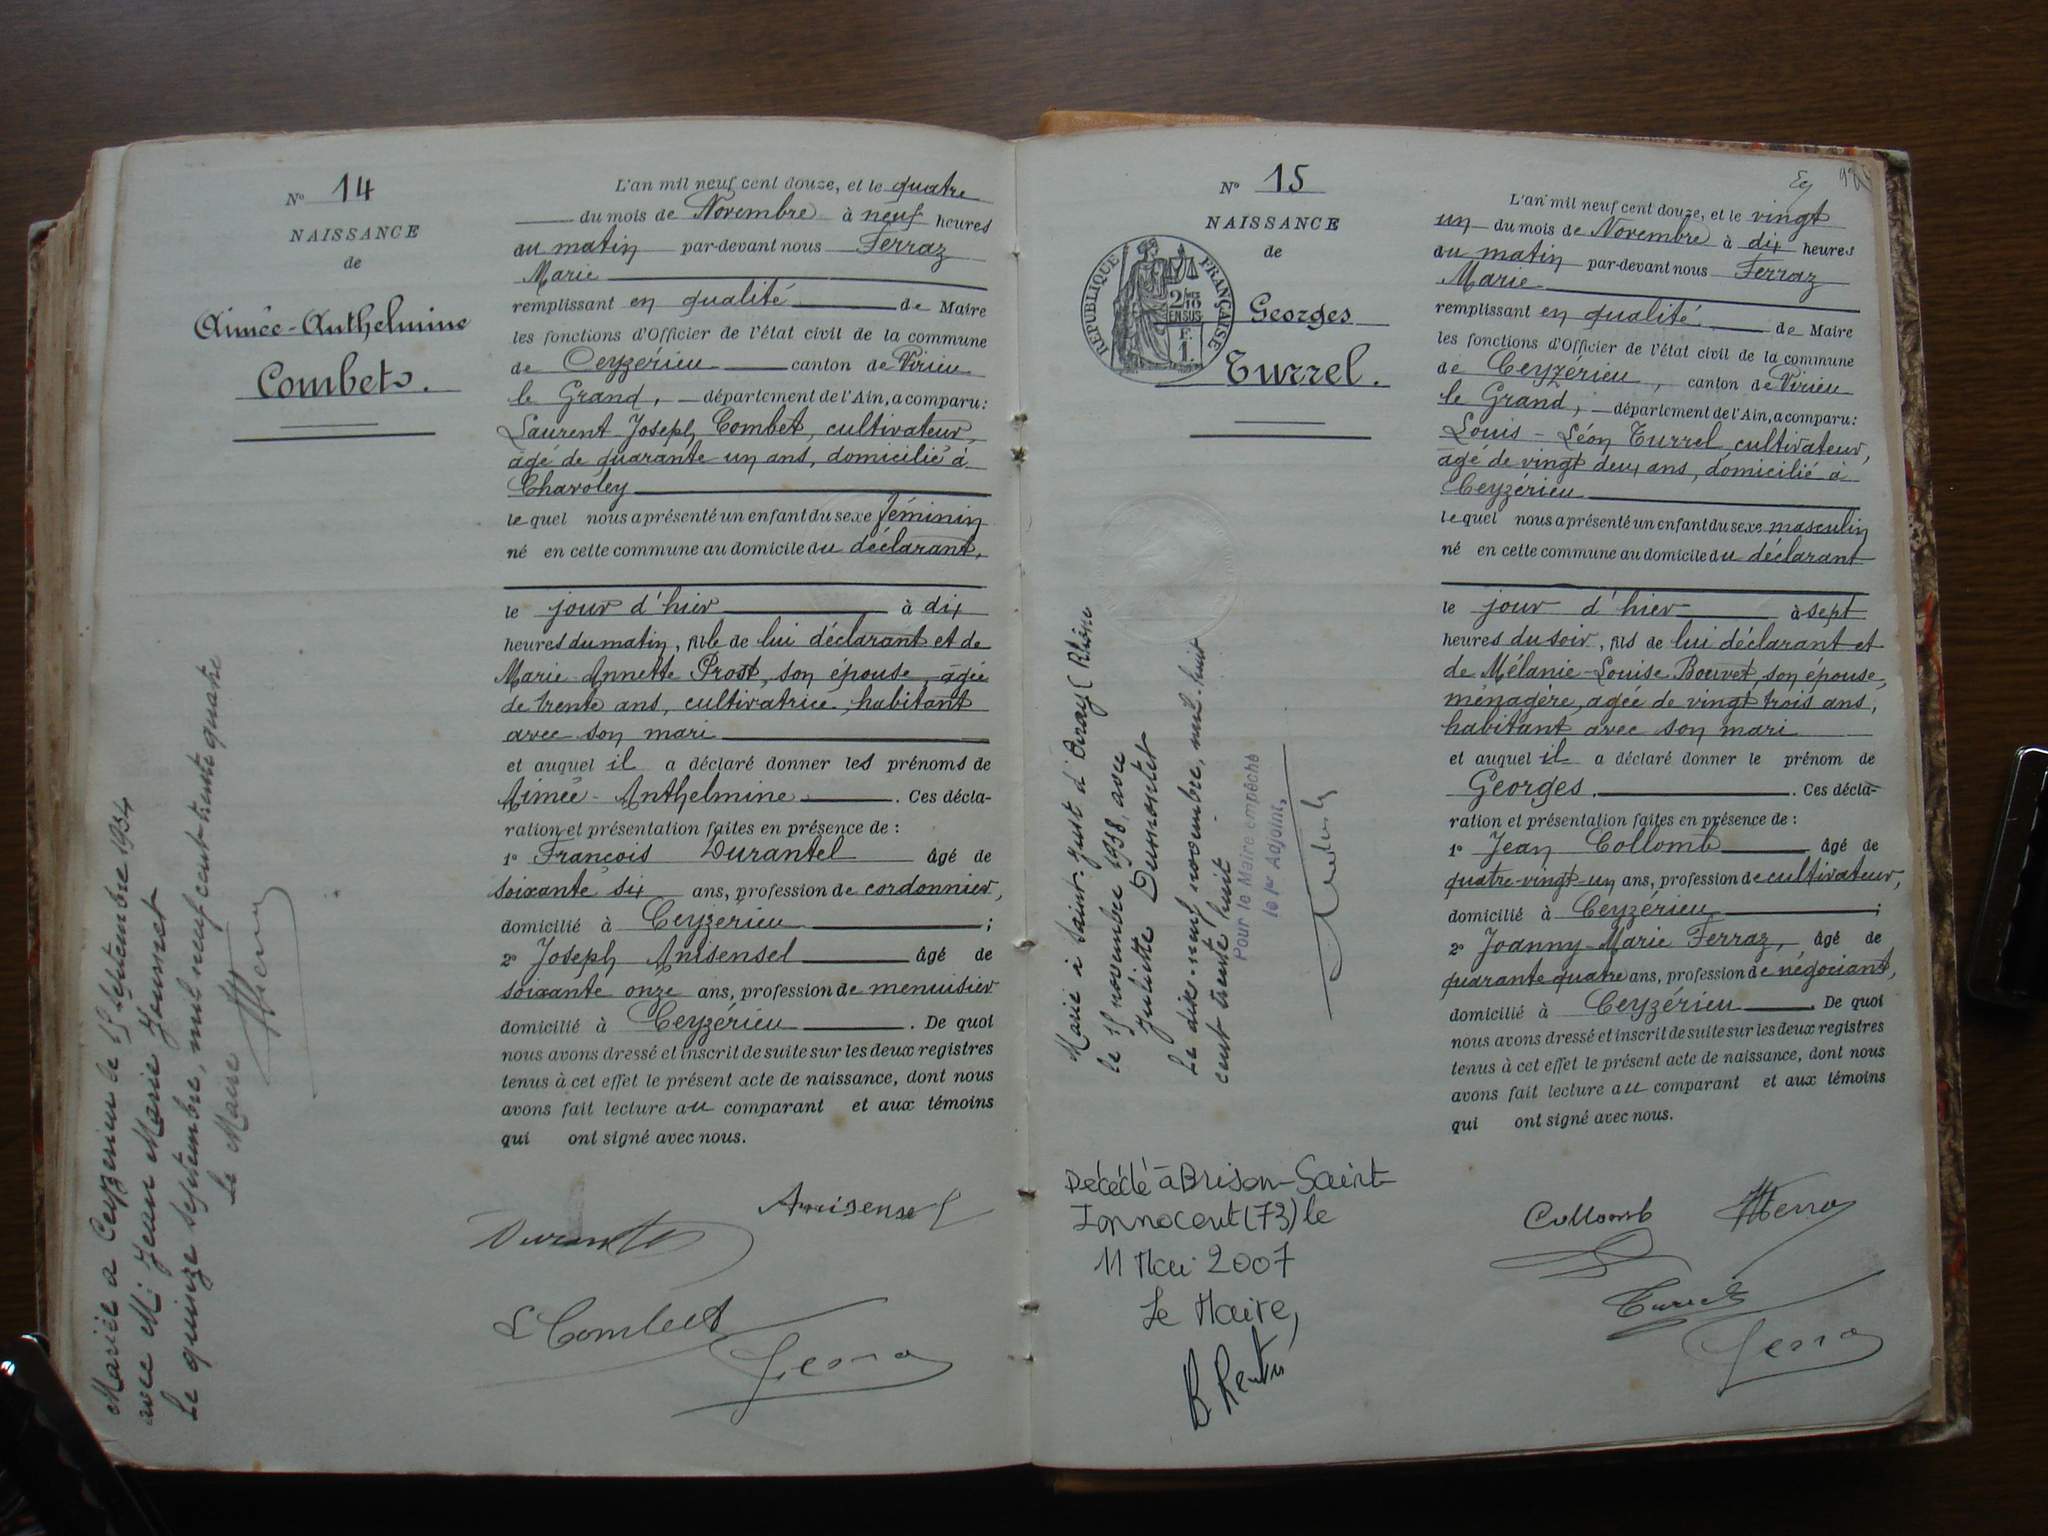 N° 14
NAISSANCE
de
Aimée-Anthelmine
Combet.
L'an mil neuf cent douze, et le quatre
du mois de Novembre à neuf heures
du matin par-devant nous Ferraz
Marie
remplissant en qualité de Maire
les fonctions d'Officier de l'état civil de la commune
de Ceyzérieu canton de Virieu
le Grand, département de l'Ain, a comparu:
Laurent Joseph Combet, cultivateur,
âgé de quarante un ans, domicilié à
Chavoley
lequel nous a présenté un enfant du sexe féminin
né en cette commune au domicile du déclarant,
le jour d'hier à dix
heures du matin, fille de lui déclarant et de
Marie-Annette Prost, son épouse, agée
de trente ans, cultivatrice, habitant
avec son mari
et auquel il a déclaré donner les prénoms de
Aimée-Anthelmine. Ces décla-
ration et présentation faites en présence de :
1° François Durantel âgé de
soixante six ans, profession de cordonnier,
domicilié à Ceyzérieu ;
2° Joseph Anisensel âgé de
soixante onze ans, profession de menuisier
domicilié à Ceyzérieu. De quoi
nous avons dressé et inscrit de suite sur les deux registres
tenus à cet effet le présent acte de naissance, dont nous
avons fait lecture au comparant et aux témoins
qui ont signé avec nous.
Anisensel
L Combet
Mariée a Ceyzerieu le 15 Septembre 1934
avec M. Jean Marie
Le quinze septembre, mil neuf cent trente quatre
Le Maire
N° 15
NAISSANCE
de
RÉPUBLIQUE FRANÇAISE
2/10
EN SUS
F.
1.
Georges
Turrel.
L'an mil neuf cent douze, et le vingt
un du mois de Novembre à dix heures
du matin par-devant nous Ferraz
Marie
remplissant en qualité de Maire
les fonctions d'Officier de l'état civil de la commune
de Ceyzérieu, canton de Virieu
le Grand, département de l'Ain, a comparu:
Louis-Léon Turrel, cultivateur,
âgé de vingt deux ans, domicilié à
Ceyzérieu
lequel nous a présenté un enfant du sexe masculin
né en cette commune au domicile du déclarant
le jour d'hier à sept
heures du soir, fils de lui déclarant et
de Mélanie-Louise Bouvet, son épouse,
ménagère, agée de vingt trois ans,
habitant avec son mari
et auquel il a déclaré donner le prénom de
Georges. Ces décla-
ration et présentation faites en présence de :
1° Jean Collomb âgé de
quatre-vingt-un ans, profession de cultivateur,
domicilié à Ceyzérieu ;
2° Joanny-Marie Ferraz, âgé de
quarante quatre ans, profession de négociant,
domicilié à Ceyzérieu. De quoi
nous avons dressé et inscrit de suite sur les deux registres
tenus à cet effet le présent acte de naissance, dont nous
avons fait lecture au comparant et aux témoins
qui ont signé avec nous.
Collomb
Marié à Saint-Just d'Avray (Rhône
le 15 novembre 1938, avec
Juliette Dumontet
Le dix-neuf novembre, mil-huit
cent trente huit
Pour le Maire empêché
le 1er Adjoint,
Décédé à Brison-Saint-
Innocent (73) le
11 Mai 2007
Le Maire,